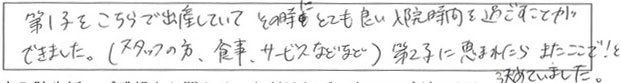 第1子をこちらで出産していて その時にとても良い入院時間を過ごすことが
できました。(スタッフの方、食事、サービスなどなど) 第2子に恵まれたら またここで!と
決めていました。